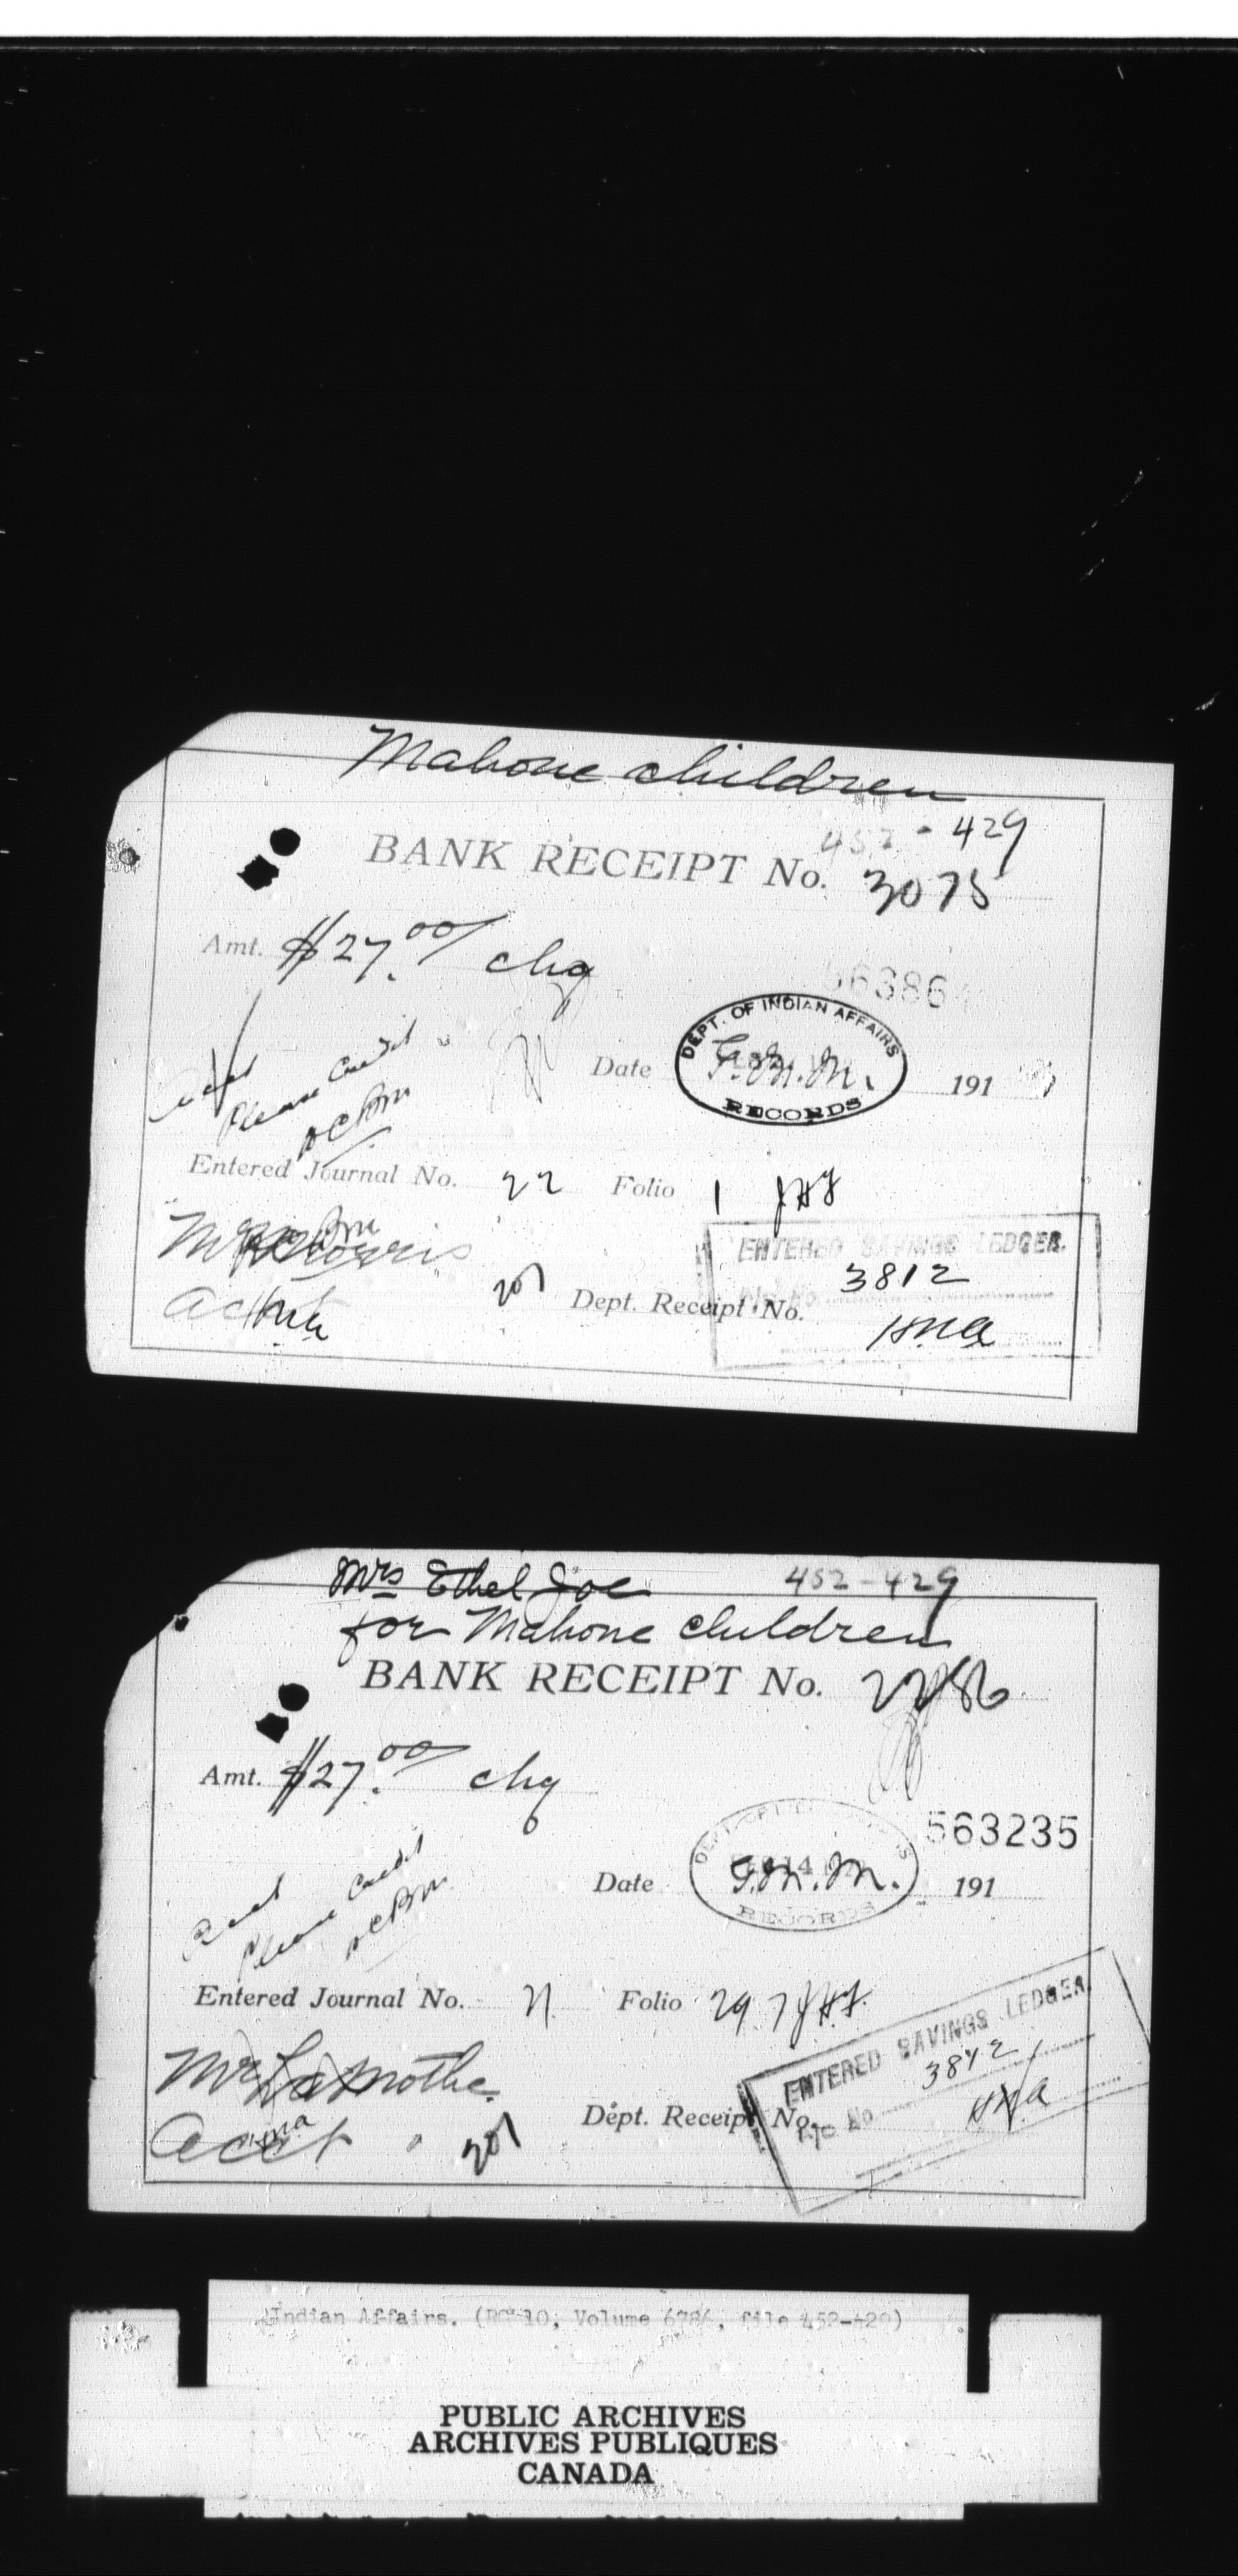 Mahone children
452-429
BANK RECEIPT No. 3075
Amt. $27.00 chq
56386
DEPT. OF INDIAN AFFAIRS
Date G.M.M. 191
RECORDS
Please Credit
Entered Journal No. 22 Folio 1 JHF
Mr Morris
ENTERED SAVINGS LEDGER.
3812
Acct
Dept. Receipt No.
HMA
Mrs Ethel Joe 452-429
for Mahone children
BANK RECEIPT No. 2286
Amt. $27.00 chq
563235
Date G.M.M. 191
RECORDS
Please Credit
Entered Journal No. 21 Folio 297 JHF.
ENTERED SAVINGS LEDGER.
3812
Mr LaMothe
Dept. Receipt No.
A/c No
Acct
HMA
Indian Affairs. (RG 10, Volume 6786, file 452-429)
PUBLIC ARCHIVES
ARCHIVES PUBLIQUES
CANADA